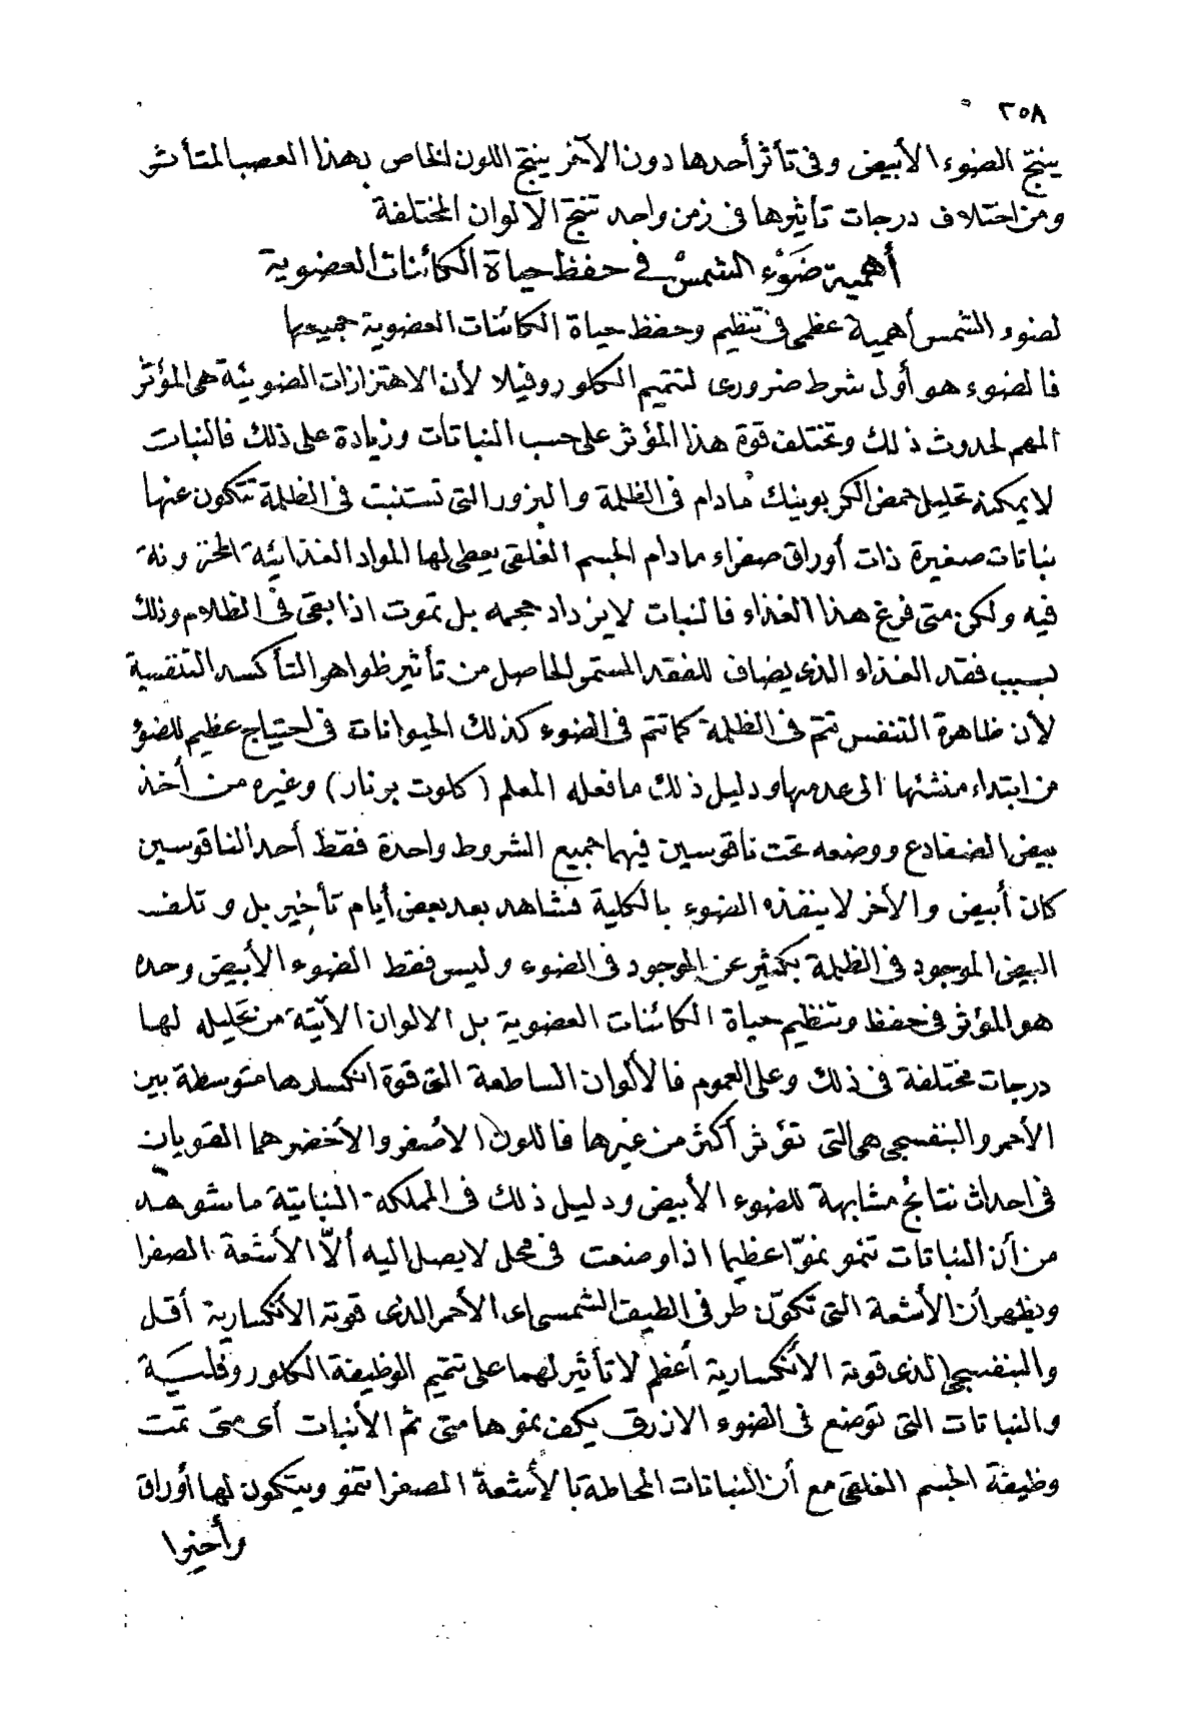 ٢٥٨
ينتج الضوء الأبيض وفى تأثر أحدها دون الآخر ينتج اللون الخاص بهذا العصب المتأثر
ومن اختلاف درجات تأثيرها فى زمن واحد تنتج الالوان المختلفة
أهمية ضوء الشمس فى حفظ حياة الكائنات العضوية
لضوء الشمس أهمية عظمى فى تنظيم وحفظ حياة الكائنات العضوية جميعها
فالضوء هو أول شرط ضرورى لتتميم الكلوروفيلا لأن الاهتزازات الضوئية هى المؤثر
المهم لحدوث ذلك وتختلف قوة هذا المؤثر على حسب النباتات وزيادة على ذلك فالنبات
لا يمكنه تحليل حمض الكربونيك مادام فى الظلمة والبزور التى تستنبت فى الظلمة تتكون عنها
نباتات صغيرة ذات أوراق صفراء مادام الجسم الفلقى يعطى لها المواد الغذائية المخزونة
فيه ولكن متى فرغ هذا الغذاء فالنبات لا يزداد حجمه بل تموت اذا بقى فى الظلام وذلك
بسبب فقد الغذاء الذى يضاف للفقد المستمر الحاصل من تأثير ظواهر التأكسد التنفسية
لأن ظاهرة التنفس تتم فى الظلمة كما تتم فى الضوء كذلك الحيوانات فى احتياج عظيم للضؤ
من ابتداء منشئها الى عدمها ودليل ذلك ما فعله المعلم (كلوت برنار) وغيره من أخذ
بيض الضفادع ووضعه تحت ناقوسين فيهما جميع الشروط واحدة فقط أحد الناقوسين
كان أبيض والأخر لا ينفذه الضوء بالكلية فشاهد بعد بعض أيام تأخير بل وتلف
البيض الموجود فى الظلمة بكثير عن الموجود فى الضوء وليس فقط الضوء الأبيض وحده
هو المؤثر فى حفظ وتنظيم حياة الكائنات العضوية بل الالوان الأتية من تحليله لها
درجات مختلفة فى ذلك وعلى العموم فالألوان الساطعة التى قوة انكسارها متوسطة بين
الأحمر والبنفسجى هى التى تؤثر أكثر من غيرها فاللون الاصفر والأخضر هما القويان
فى احداث نتائج مشابهة للضوء الأبيض ودليل ذلك فى المملكة النباتية ما شوهد
من أن النباتات تنمو نموّا عظيما اذا وضعت فى محل لا يصل اليه ألاّ الأشعة الصفرا
ويظهر أن الأشعة التى تكوّن طرفى الطيف الشمسى اى الأحمر الذى قوته الأنكسارية أقل
والبنفسجى الذى قوته الأنكسارية أعظم لا تأثير لهما على تتميم الوظيفة الكلوروفلسية
والنباتات التى توضع فى الضوء الازرق يكف نموها متى تم الأنبات أى متى تمت
وظيفة الجسم الفلقى مع أن النباتات المحاطة بالأشعة الصفرا تنمو ويتكون لها أوراق
وأخيرا